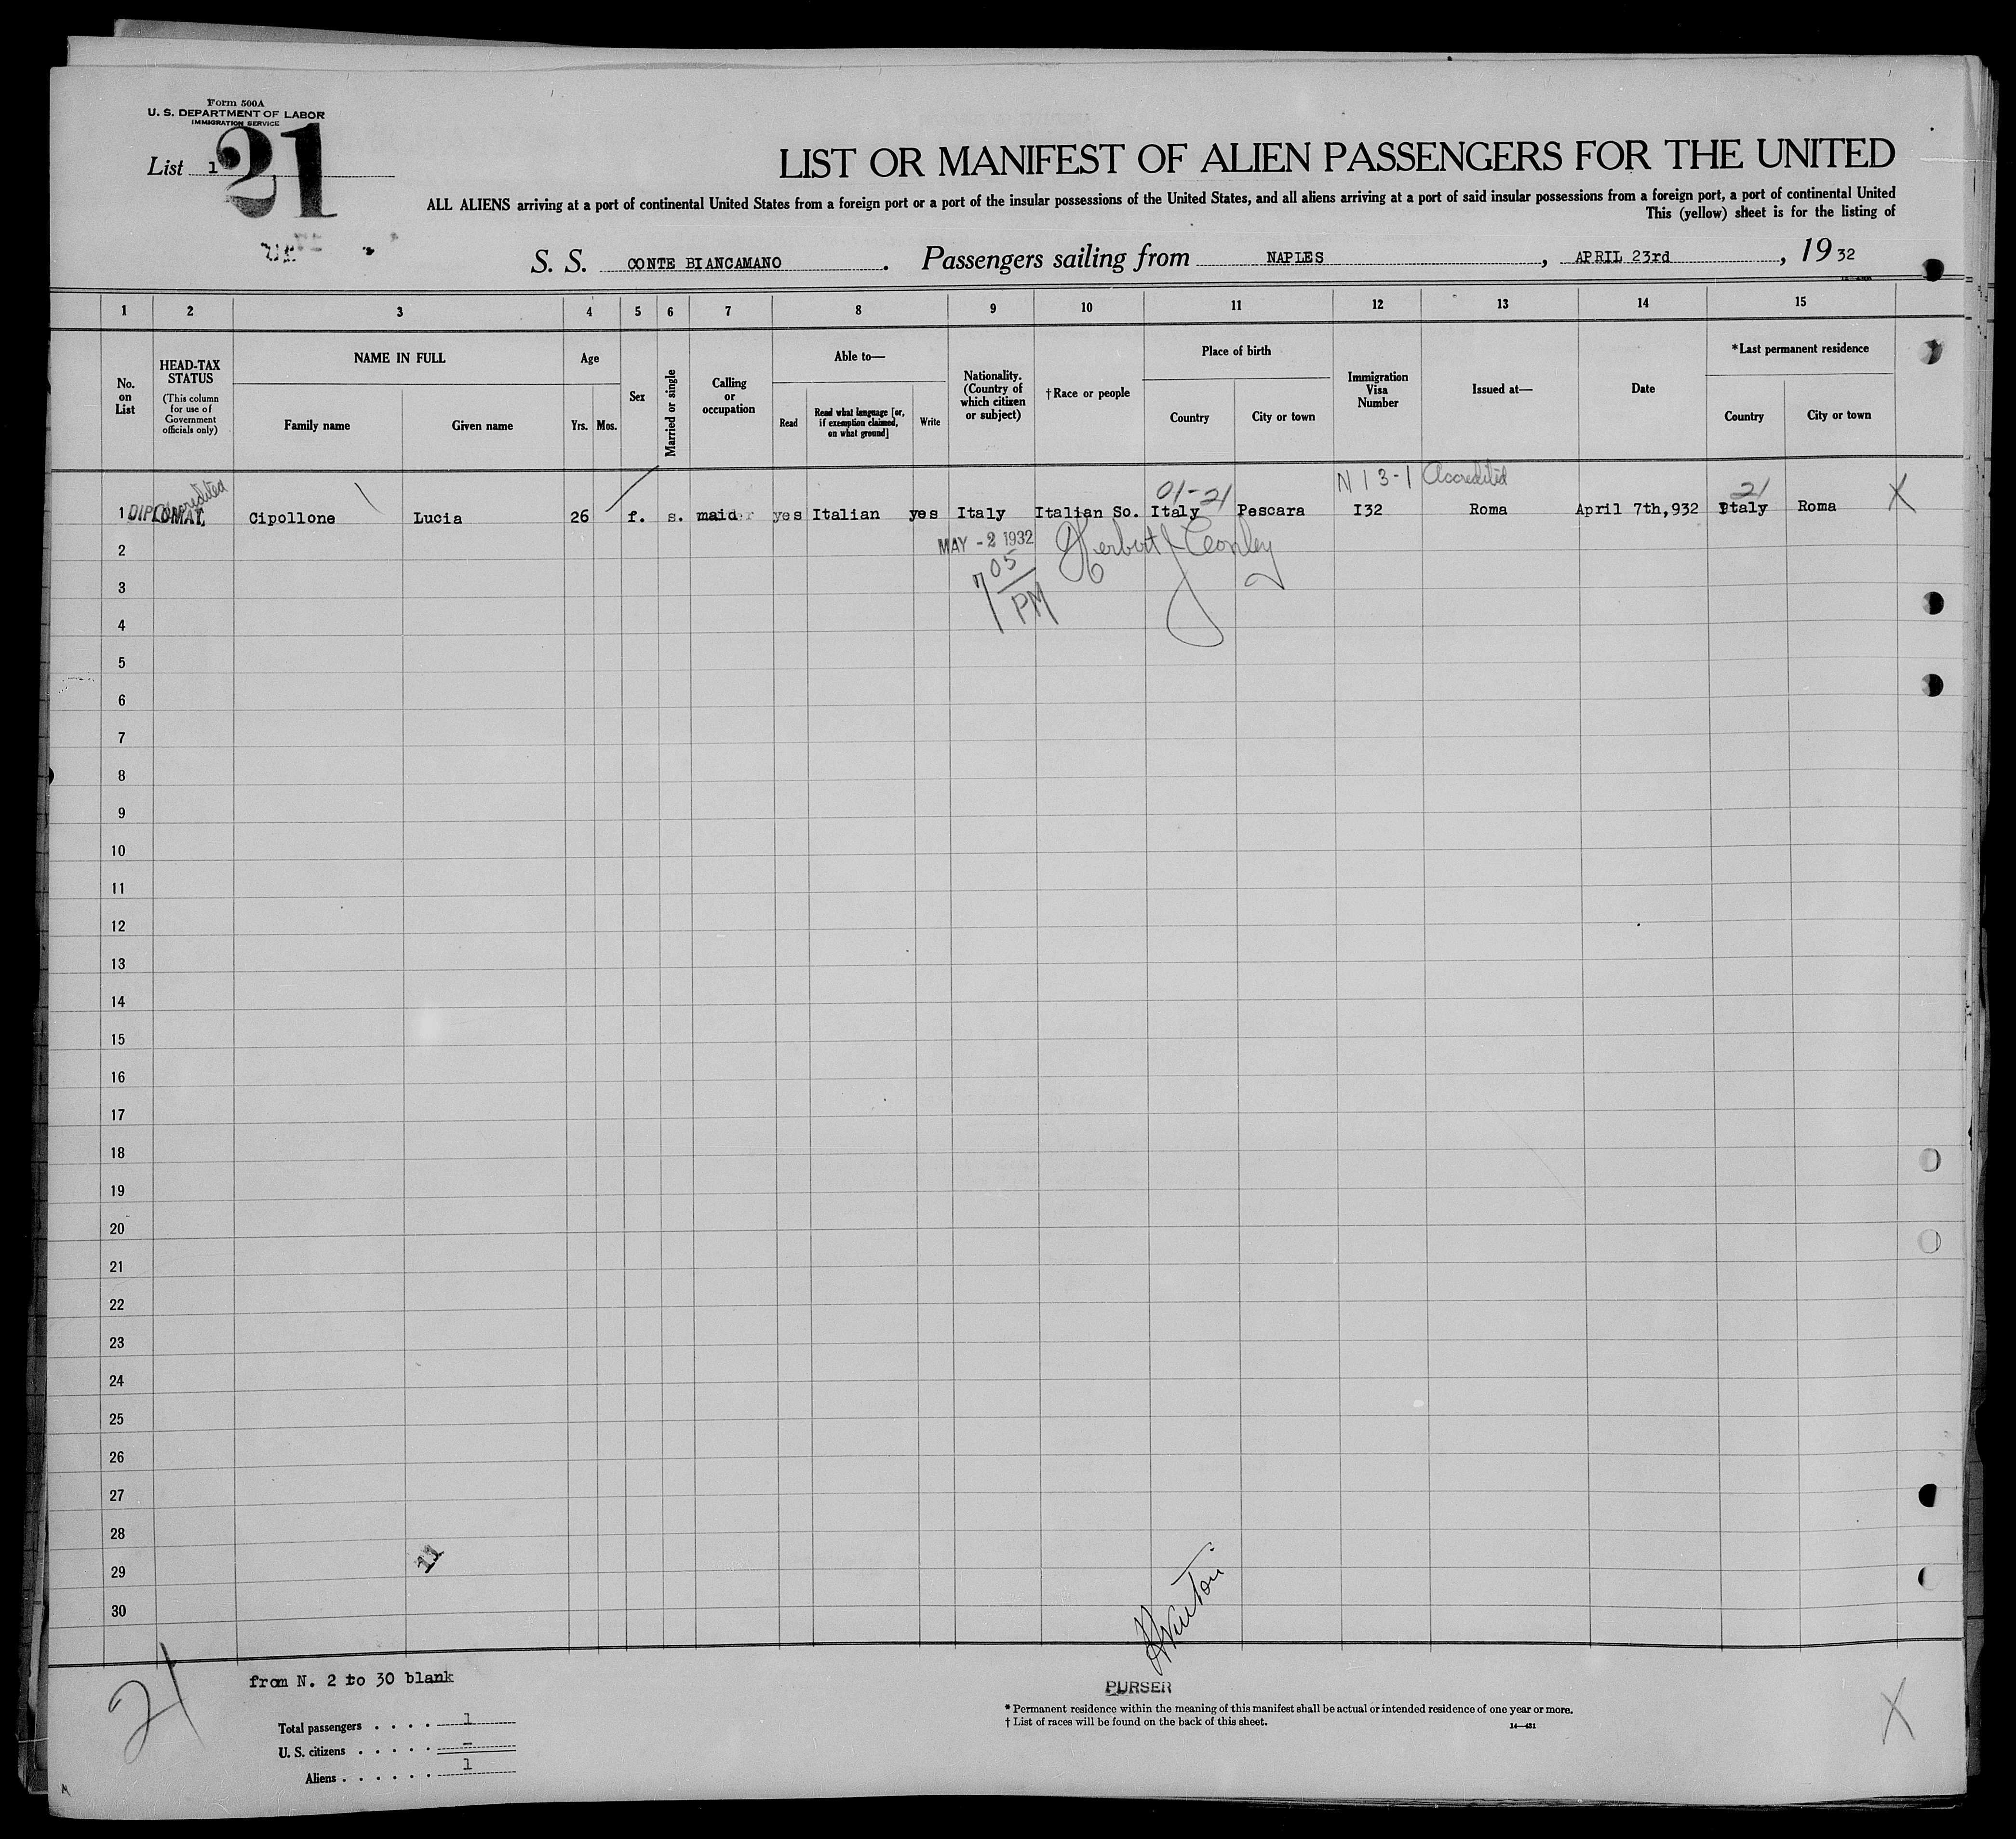 Form 500A
U. S. DEPARTMENT OF LABOR
IMMIGRATION SERVICE
List 1
21
LIST OR MANIFEST OF ALIEN PASSENGERS FOR THE UNITED
ALL ALIENS arriving at a port of continental United States from a foreign port or a port of the insular possessions of the United States, and all aliens arriving at a port of said insular possessions from a foreign port, a port of continental United
This (yellow) sheet is for the listing of
S. S. CONTE BIANCAMANO. Passengers sailing from NAPLES, APRIL 23rd, 1932
1 2 3 4 5 6 7 8 9 10 11 12 13 14 15
No. on List
HEAD-TAX STATUS
(This column for use of Government officials only)
NAME IN FULL
Family name Given name
Age
Yrs. Mos.
Sex
Married or single
Calling or occupation
Able to—
Read
Read what language [or, if exemption claimed, on what ground]
Write
Nationality. (Country of which citizen or subject)
† Race or people
Place of birth
Country City or town
Immigration Visa Number
Issued at—
Date
*Last permanent residence
Country City or town
Accredited
01-21 N 13-1 Accredited 21
1 DIPLOMAT, Cipollone Lucia 26 f. s. maid yes Italian yes Italy Italian So. Italy Pescara I32 Roma April 7th,932 Italy Roma X
2 MAY - 2 1932 Herbert J Conley
3 7 05 PM
4
5
6
7
8
9
10
11
12
13
14
15
16
17
18
19
20
21
22
23
24
25
26
27
28
29
30
21
from N. 2 to 30 blank
Total passengers . . . . 1
U. S. citizens . . . . . –
Aliens . . . . . . 1
PURSER
* Permanent residence within the meaning of this manifest shall be actual or intended residence of one year or more.
† List of races will be found on the back of this sheet.
14—431
X